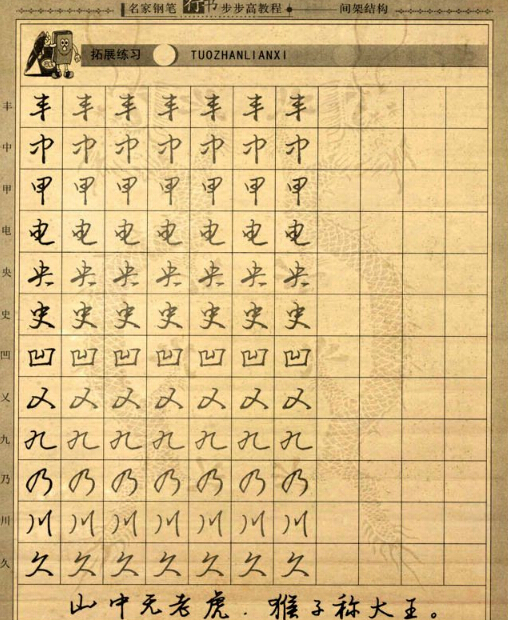 名家钢笔 行书 步步高教程 间架结构
拓展练习 TUOZHANLIANXI
丰 丰 丰 丰 丰 丰 丰 丰
中 中 中 中 中 中 中 中
甲 甲 甲 甲 甲 甲 甲 甲
电 电 电 电 电 电 电 电
央 央 央 央 央 央 央 央
史 史 史 史 史 史 史 史
凹 凹 凹 凹 凹 凹 凹 凹
乂 又 又 又 又 又 又 又
九 九 九 九 九 九 九 九
乃 乃 乃 乃 乃 乃 乃 乃
川 川 川 川 川 川 川 川
久 久 久 久 久 久 久 久
山中无老虎.猴子称大王。